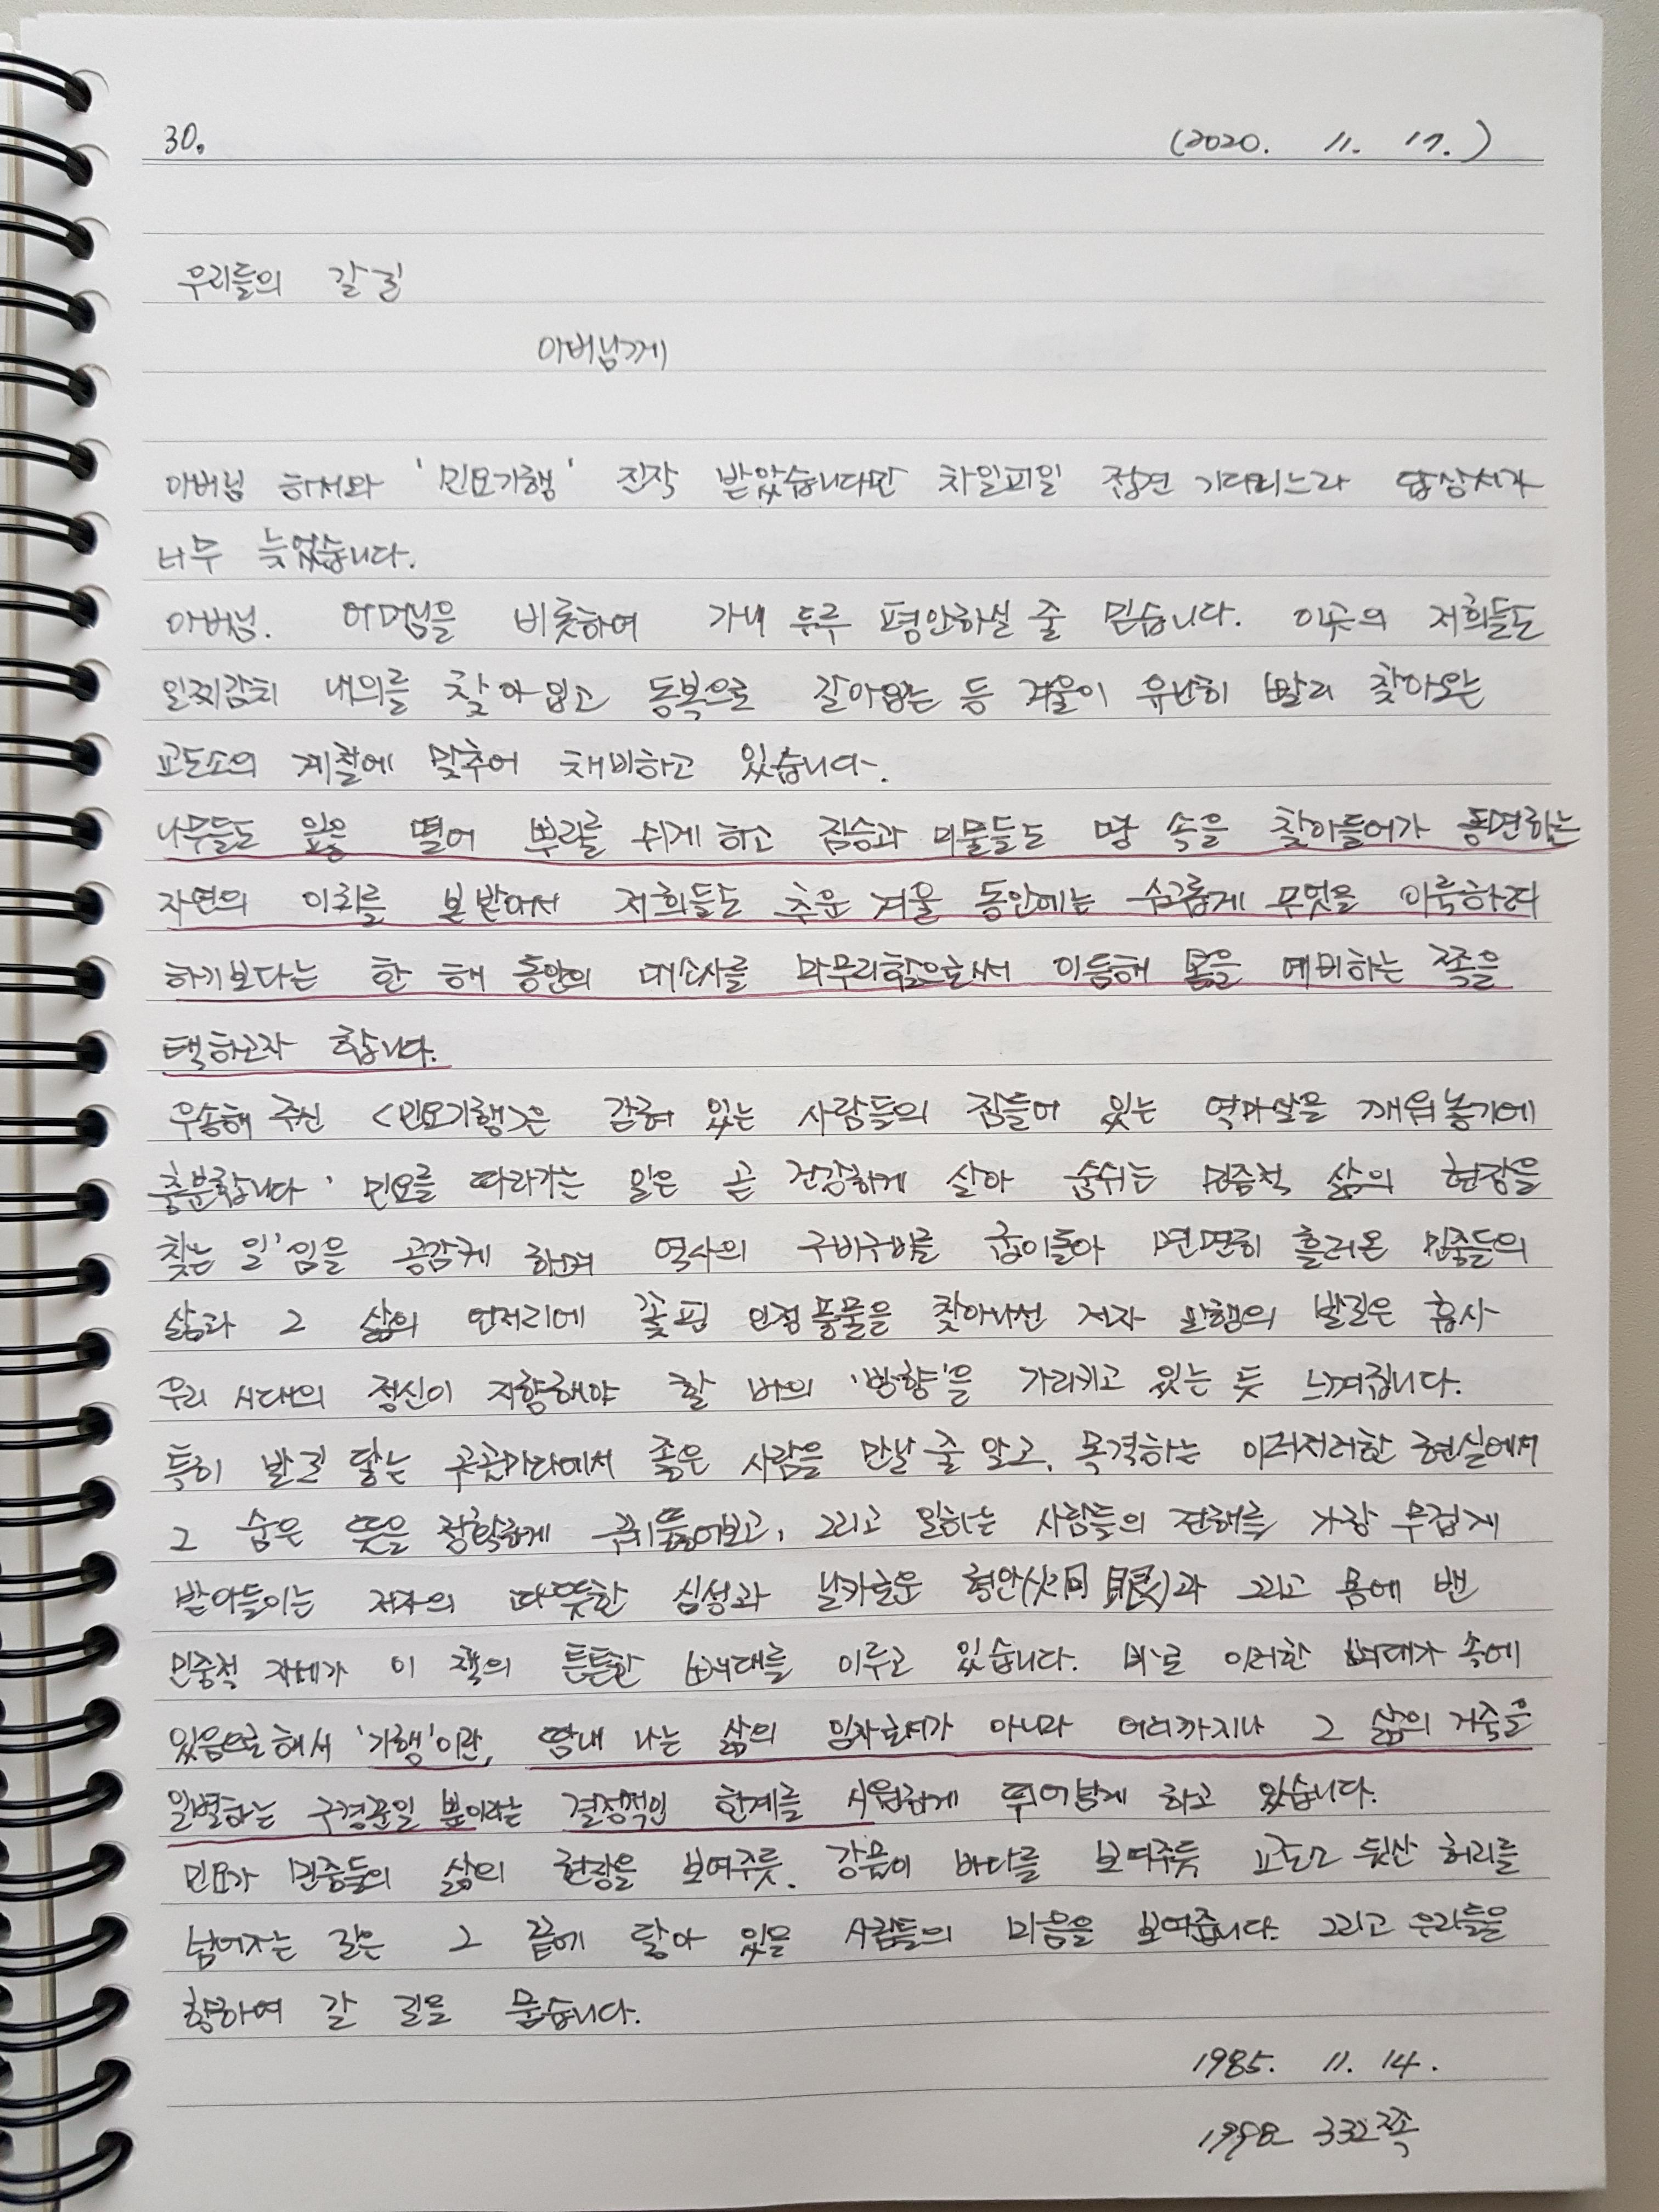 30.
(2020. 11. 17.)
우리들의 갈 길
아버님께
아버님 하서와 '민요기행' 진작 받았습니다만 차일피일 접견 기다리느라 답상서가
너무 늦었습니다.
아버님. 어머님을 비롯하여 가내 두루 평안하실 줄 믿습니다. 이곳의 저희들도
일찌감치 내의를 찾아 입고 동복으로 갈아입는 등 겨울이 유난히 빨리 찾아오는
교도소의 계절에 맞추어 채비하고 있습니다.
나무들도 잎을 떨어 뿌리를 쉬게 하고 짐승과 미물들도 땅 속을 찾아들어가 동면하는
자연의 이치를 본받아서 저희들도 추운 겨울 동안에는 섬그릅게 무엇을 이룩하려
하기보다는 한 해 동안의 대소사를 마무리함으로써 이듬해 봄을 예비하는 쪽을
택하고자 합니다.
우송해 주신 <민요기행>은 갇혀 있는 사람들의 잠들어 있는 역마살을 깨워놓기에
충분합니다 '민요를 따라가는 일은 곧 건강하게 살아 숨쉬는 민중적 삶의 현장을
찾는 일'임을 공감케 하며 역사의 구비구비를 굽이돌아 면면히 흘러온 민중들의
삶과 그 삶의 언저리에 꽃핀 인정풍물을 찾아나선 저자 일행의 발길은 흡사
우리 시대의 정신이 지향해야 할 바의 '방향'을 가리키고 있는 듯 느껴집니다.
특히 발길 닿는 곳곳마다에서 좋은 사람을 만날 줄 알고, 목격하는 이러저러한 현실에서
그 숨은 뜻을 정확하게 꿰뚫어보고, 그리고 일하는 사람들의 견해를 가장 무겁게
받아들이는 저자의 따뜻한 심성과 날카로운 형안(炯眼)과 그리고 몸에 밴
민중적 자세가 이 책의 튼튼한 뼈대를 이루고 있습니다. 바로 이러한 뼈대가 속에
있음으로 해서 '기행'이란, 땀내 나는 삶의 임자로서가 아니라 어디까지나 그 삶의 거죽을
일별하는 구경꾼일 뿐이라는 결정적인 한계를 시원하게 뛰어넘게 하고 있습니다.
민요가 민중들의 삶의 현장을 보여주듯, 강물이 바다를 보여주듯 교도소 뒷산 허리를
넘어가는 길은 그 끝에 닿아 있을 사람들의 마음을 보여줍니다. 그리고 우리들을
향하여 갈 길을 묻습니다.
1985. 11. 14.
1998 332쪽